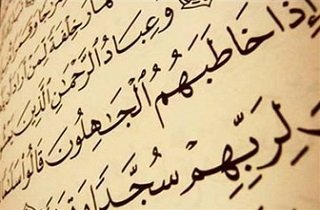 خِلْفَةً لِّمَنْ أَرَادَ
وَعِبَادُ ٱلرَّحْمَٰنِ ٱلَّذِينَ
إِذَا خَاطَبَهُمُ ٱلْجَٰهِلُونَ قَالُوا۟ سَلَٰمًا
لِرَبِّهِمْ سُجَّدًا وَ